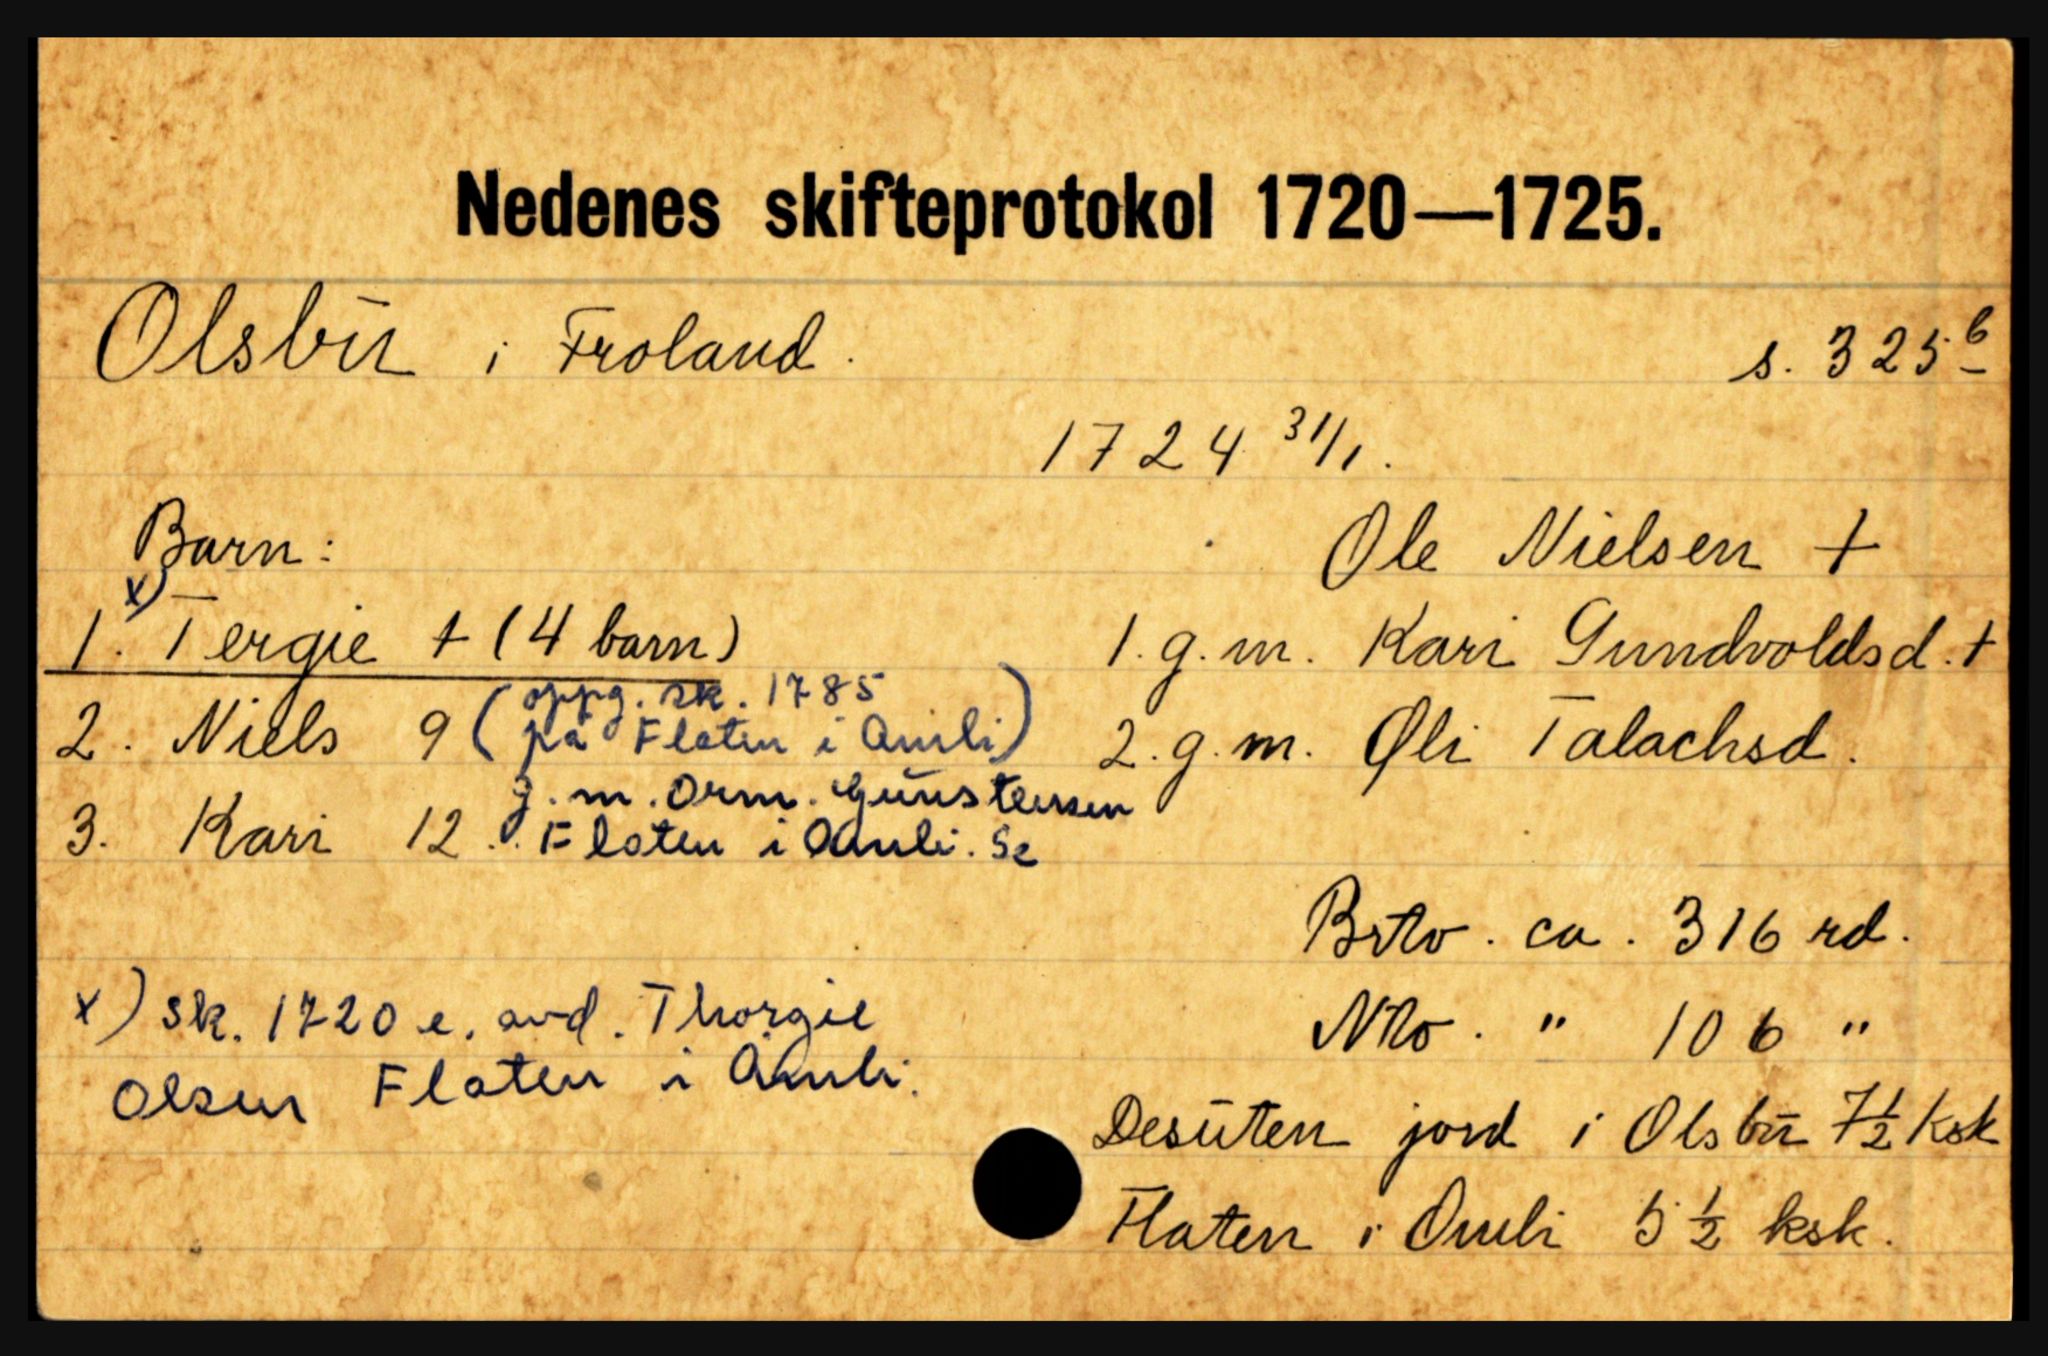 Nedenes skifteprotokol 1720—1725.
Olsbū i Froland. s. 325 b
1724 31/1.
Barn: Ole Nielsen +
1. x) Tergie + (4 barn) 1. g. m. Kari Gundvoldsd. +
2. Niels 9 (oppg. sk. 1785 på Flaten i Åmli) 2. g. m. Øli Talachsd.
g. m. Orm. Gūnsteinsen
3. Kari 12. Flaten i Åmli. Se
Brto. ca. 316 rd.
x) sk. 1720 e. avd. Thorgie Nto. " 106 "
Olsen Flaten i Åmli.
Desūten jord i Olsbū 7½ ksk
Flaten i Omli 5 ½ ksk.